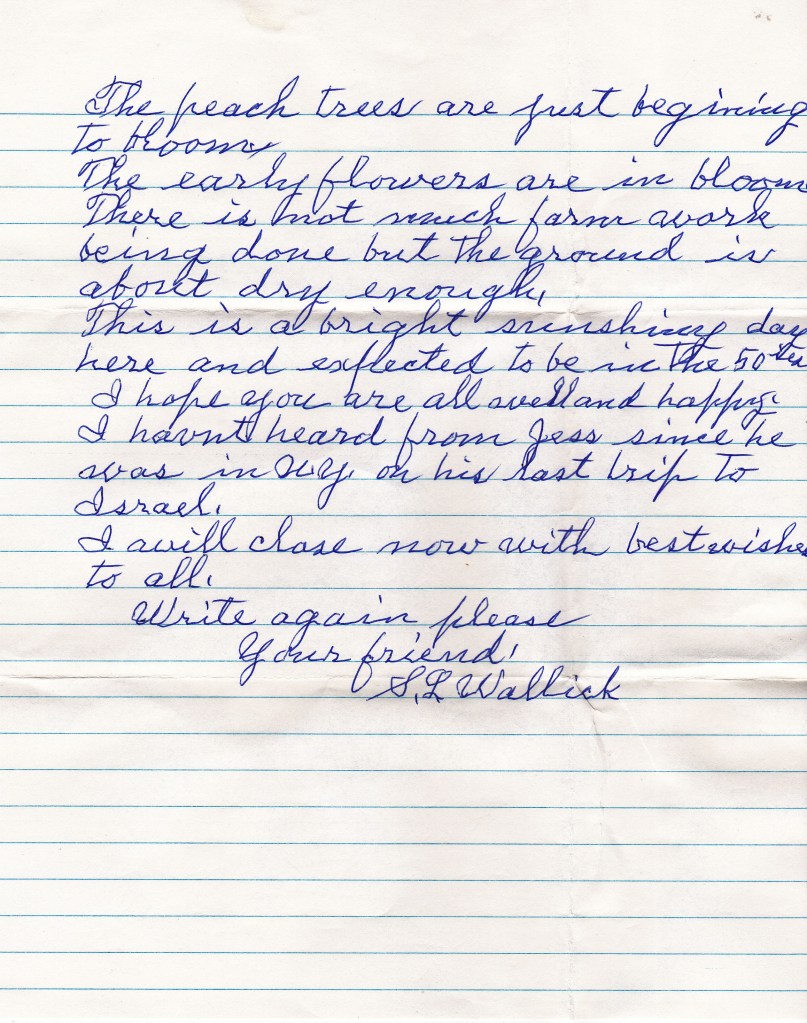 The peach trees are just begining
to bloom,
The early flowers are in bloom
There is not much farm work
being done but the ground is
about dry enough,
This is a bright sunshiny day
here and exfected to be in the 50ties
I hope you are all well and happy.
I havnt heard from Jess since he
was in NY, on his last trip to
Israel.
I will close now with best wishes
to all.
Write again please
Your friend,
S, L Wallick